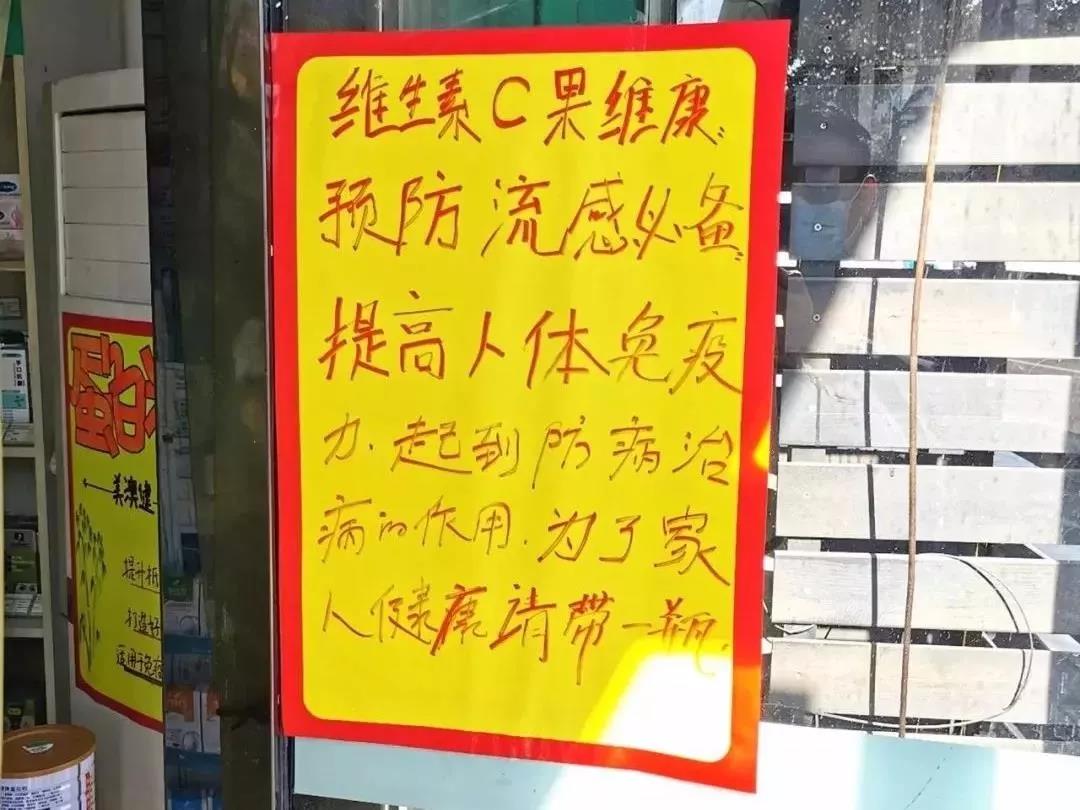 维生素C果维康
预防流感必备
提高人体免疫
力.起到防病治
病的作用.为了家
人健康请带一瓶
美澳健
提升抵
打造好
适用于免疫